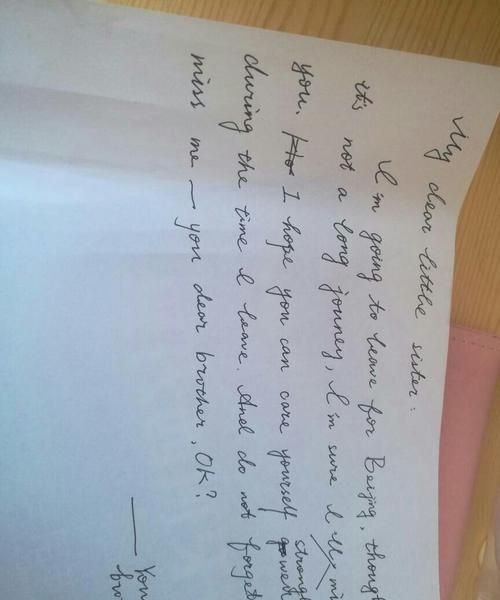 My dear little sister:
I'm going to leave for Beijing, though
it's not a long jouney, I'm sure I'll
you. I hope you can care yourself
during the time I leave. And do not forget
miss me — you dear brother, OK?
—— You